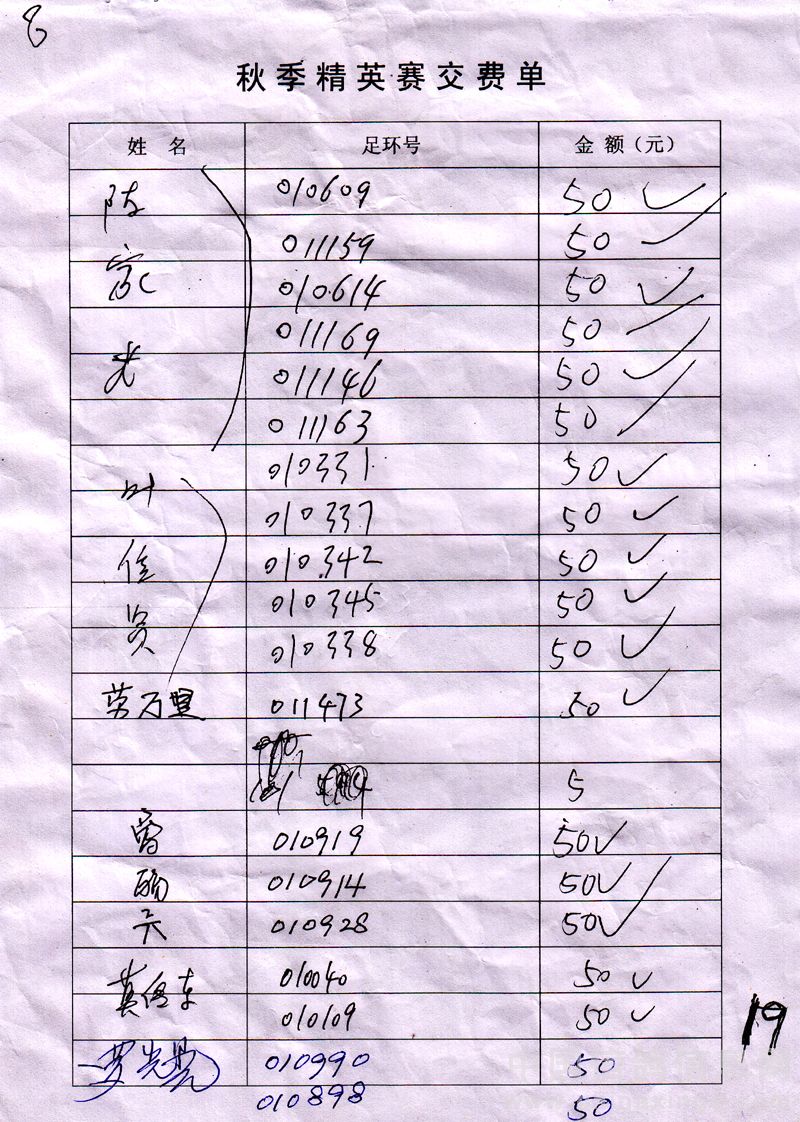 8
秋季精英赛交费单
姓 名 足环号 金 额（元）
陈 010609 50
011159 50
家 010614 50
011169 50
光 011146 50
011163 50
010331 50
叶 010337 50
信 010342 50
010345 50
贤 010338 50
万里 011473 50
5
曾 010919 50
010914 50
010928 50
010040 50
010109 50
19
罗光 010990 50
010898 50